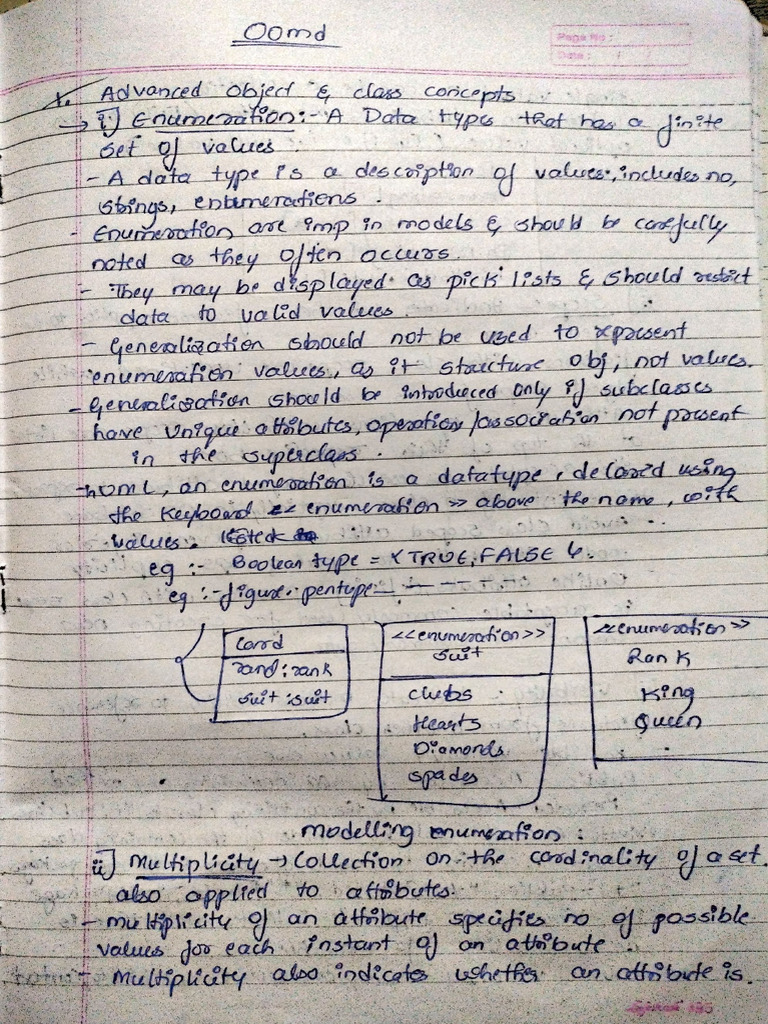 Oomd
Page No :
Date : / /
1. Advanced object & class concepts
→ i] Enumeration:- A Data types that has a finite
set of values
- A data type is a description of values, includes no,
strings, enumerations.
- Enumeration are imp in models & should be carefully
noted as they often occurs.
- They may be displayed as pick lists & should restrict
data to valid values.
- Generalization should not be used to represent
enumeration values, as it structure obj, not values.
- Generalization should be introduced only if subclasses
have unique attributes, operation/association not present
in the superclass.
- UML, an enumeration is a datatype, declared using
the keyboard << enumeration >> above the name, with
values. listed
eg :- Boolean type = { TRUE, FALSE }.
eg :- figure. pentype
Card
rand : rank
suit : suit
<<enumeration>>
suit
clubs
Hearts
Diamonds
spades
<<enumeration>>
Rank
King
Queen
modelling enumeration :
ii] Multiplicity → Collection on the cardinality of a set.
also applied to attributes.
- multiplicity of an attribute specifies no of possible
values for each instant of an attribute.
- Multiplicity also indicates whether an attribute is.